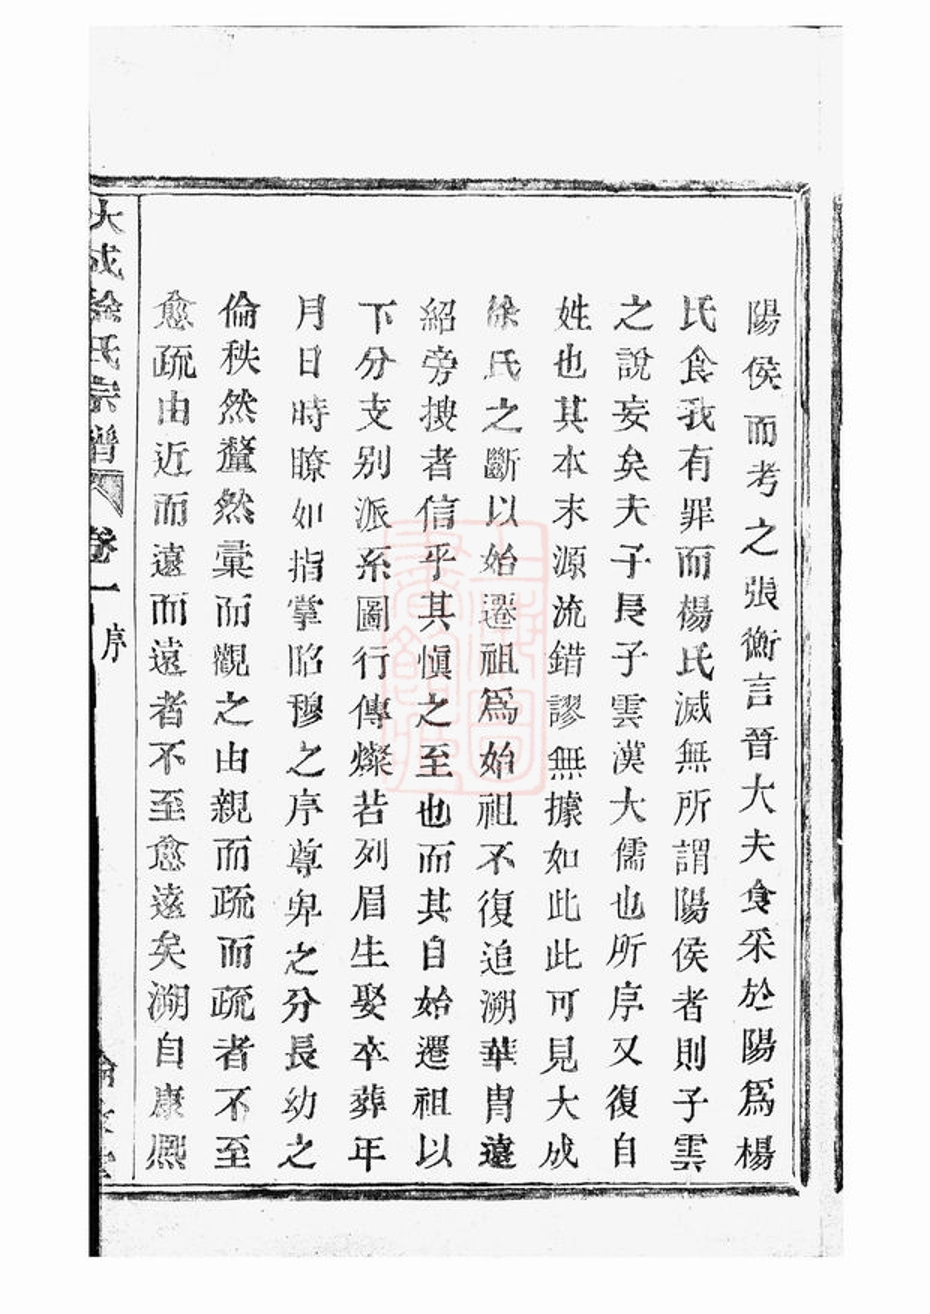 陽侯而考之張衡言晉大夫食采於陽爲楊
氏食我有罪而楊氏滅無所謂陽侯者則子雲
之說妄矣夫子長子雲漢大儒也所序又復自
姓也其本末源流錯謬無據如此此可見大成
徐氏之斷以始遷祖爲始祖不復追溯華胄遠
紹旁搜者信乎其愼之至也而其自始遷祖以
下分支别派系圖行傳燦若列眉生娶卒葬年
月日時瞭如指掌昭穆之序尊卑之分長幼之
倫秩然釐然彙而觀之由親而疏而疏者不至
愈疏由近而遠而遠者不至愈遠矣溯自康熙
大成徐氏宗譜
卷一
序
倫敘堂
上海圖書館藏